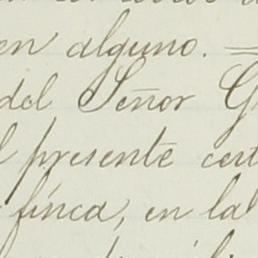 en alguno. =
del Señor G
presente cert
finca, en la